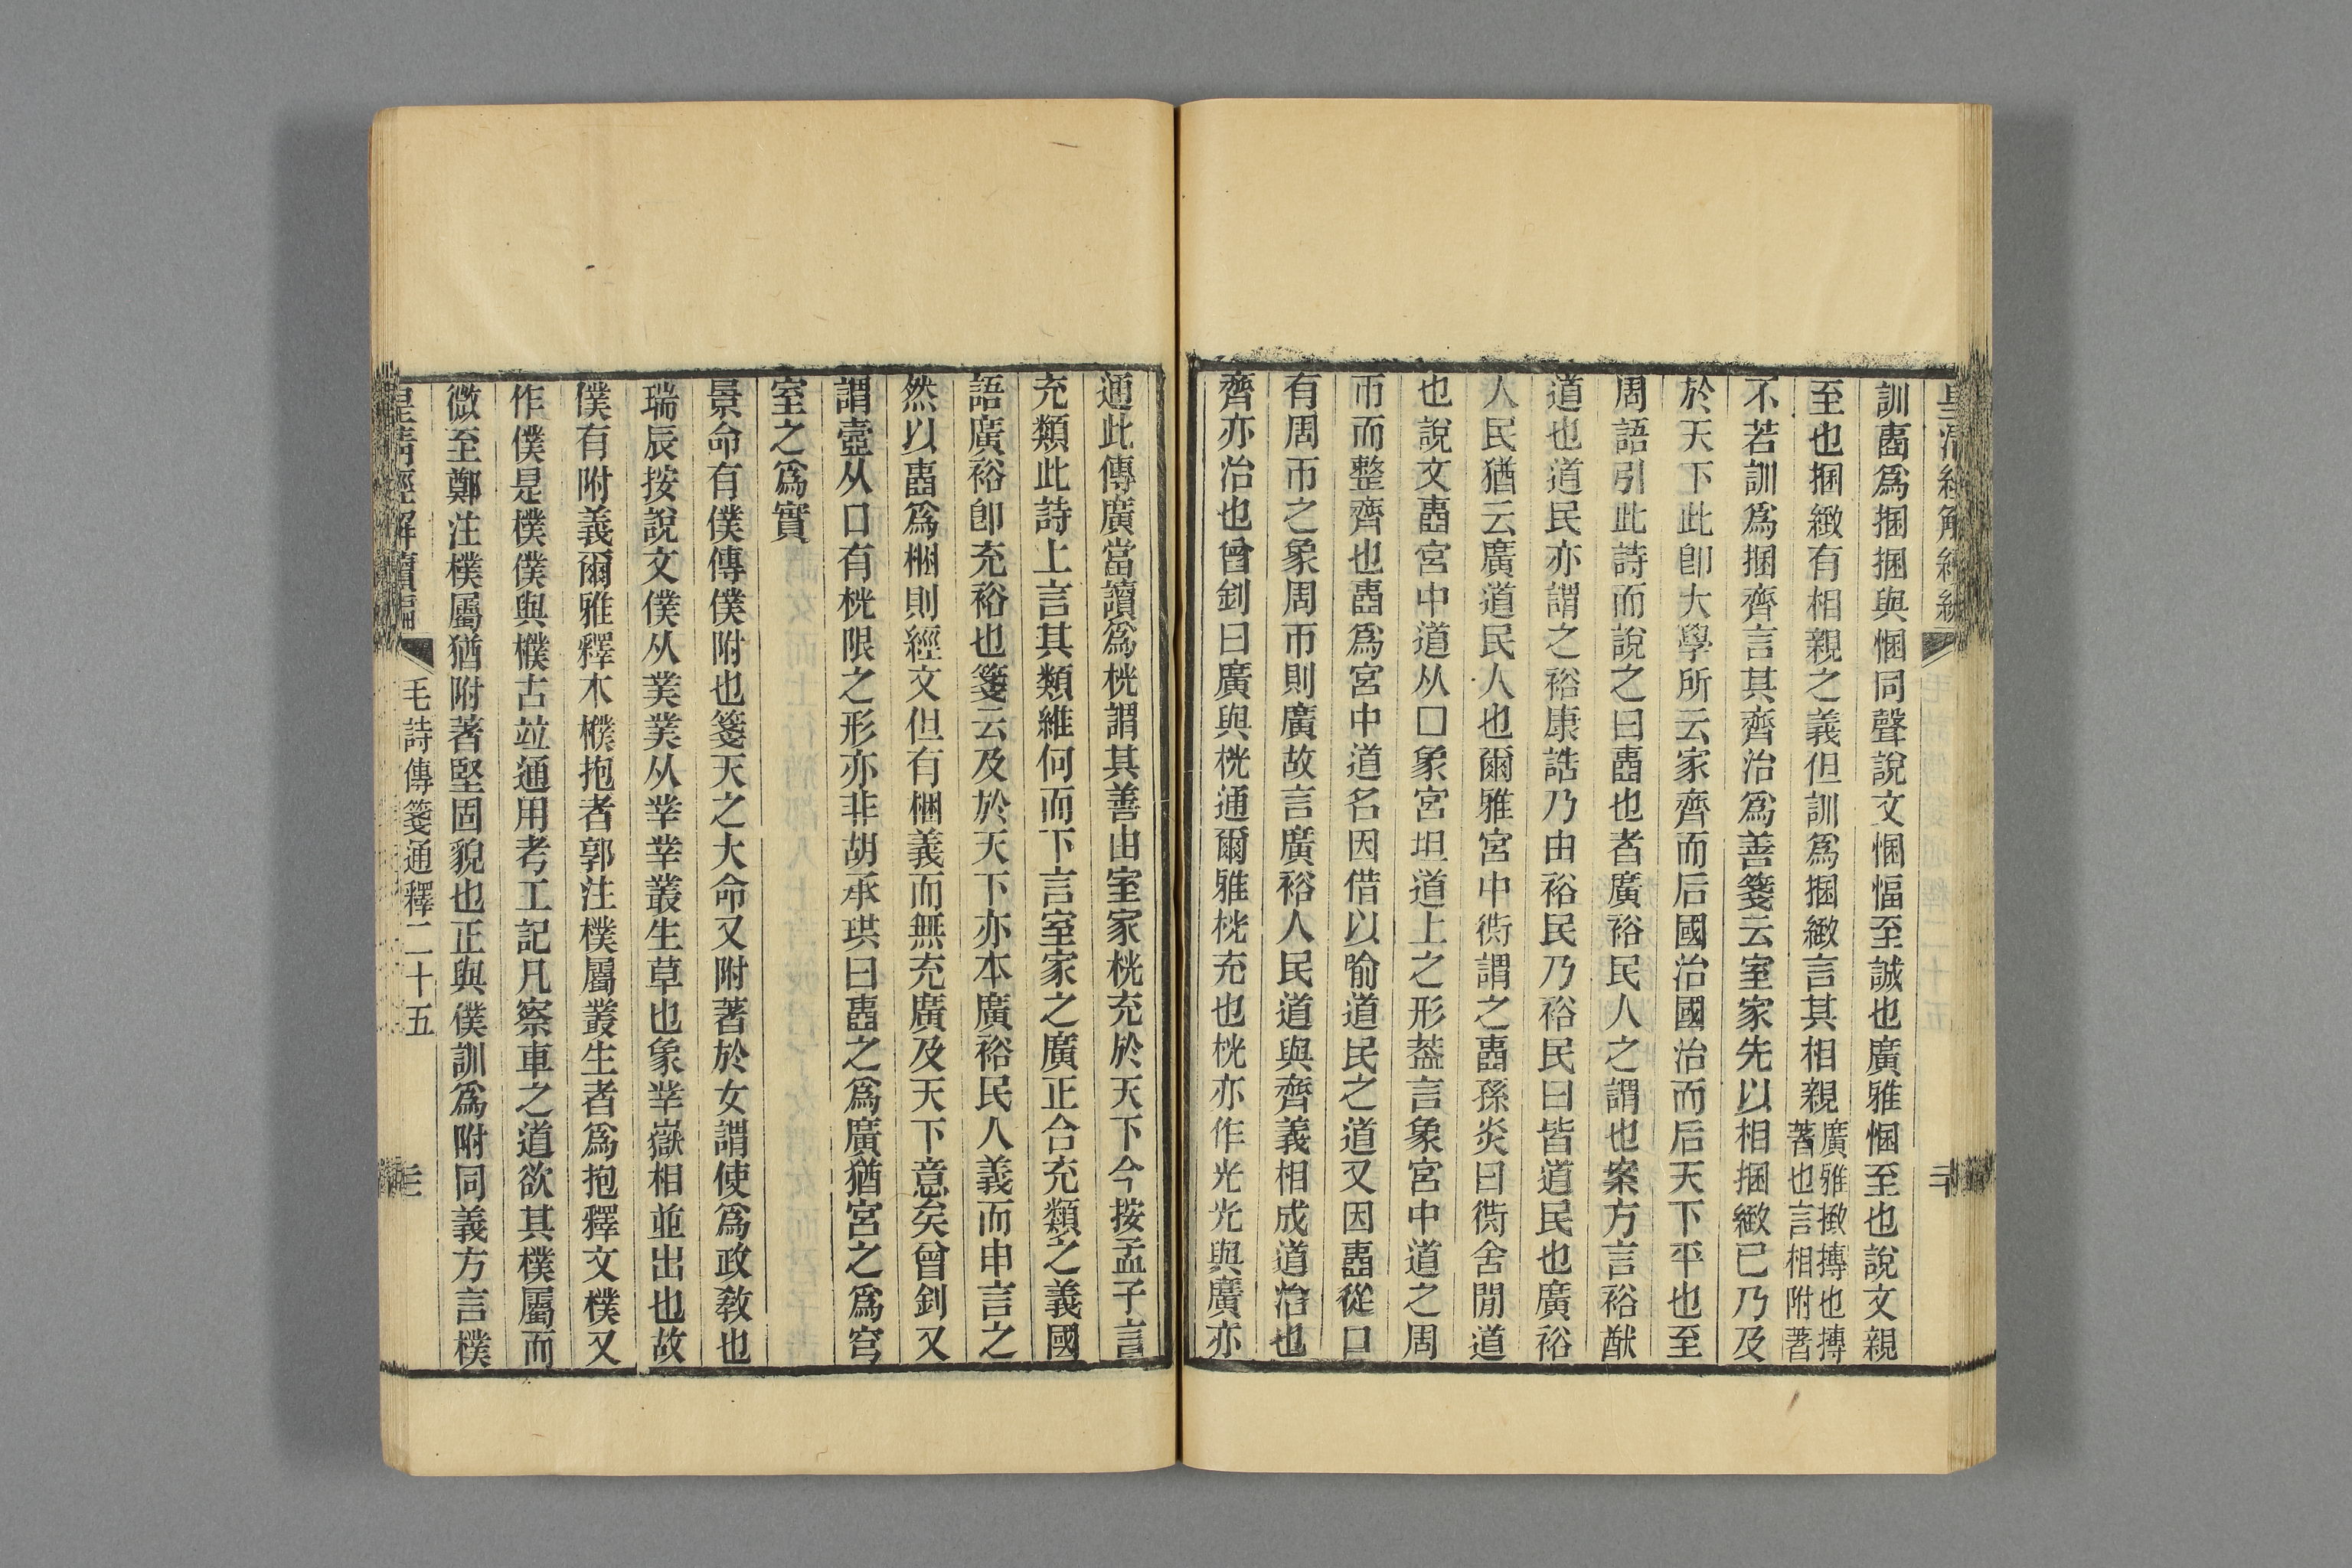 訓壼爲捆捆與悃同聲說文悃愊至誠也廣雅悃至也說文親
至也捆緻有相親之義但訓爲捆緻言其相親廣雅㨖摶也摶著也言相附著
不若訓爲捆齊言其齊治爲善箋云室家先以相捆緻已乃及
於天下此卽大學所云家齊而后國治國治而后天下平也至
周語引此詩而說之曰壼也者廣裕民人之謂也案方言裕猷
道也道民亦謂之裕康誥乃由裕民乃裕民曰皆道民也廣裕
人民猶云廣道民人也爾雅宮中衖謂之壼孫炎曰衖舍閒道
也說文壼宮中道从囗象宮垣道上之形葢言象宮中道之周
帀而整齊也壼爲宮中道名因借以喻道民之道又因壼從口
有周帀之象周帀則廣故言廣裕人民道與齊義相成道治也
齊亦治也曾釗曰廣與桄通爾雅桄充也桄亦作光光與廣亦
通此傳廣當讀爲桄謂其善由室家桄充於天下今按孟子言
充類此詩上言其類維何而下言室家之廣正合充類之義國
語廣裕卽充裕也箋云及於天下亦本廣裕民人義而申言之
然以壼爲梱則經文但有梱義而無充廣及天下意矣曾釗又
謂壼从口有桄限之形亦非胡承珙曰壼之爲廣猶宮之爲穹
室之爲實
景命有僕傳僕附也箋天之大命又附著於女謂使爲政敎也
瑞辰按說文僕从菐菐从丵丵叢生草也象丵嶽相並出也故
僕有附義爾雅釋木樸抱者郭注樸屬叢生者爲抱釋文樸又
作僕是樸僕與樸古竝通用考工記凡察車之道欲其樸屬而
微至鄭注樸屬猶附著堅固貌也正與僕訓爲附同義方言樸
皇淸經解續編
毛詩傳箋通釋二十五